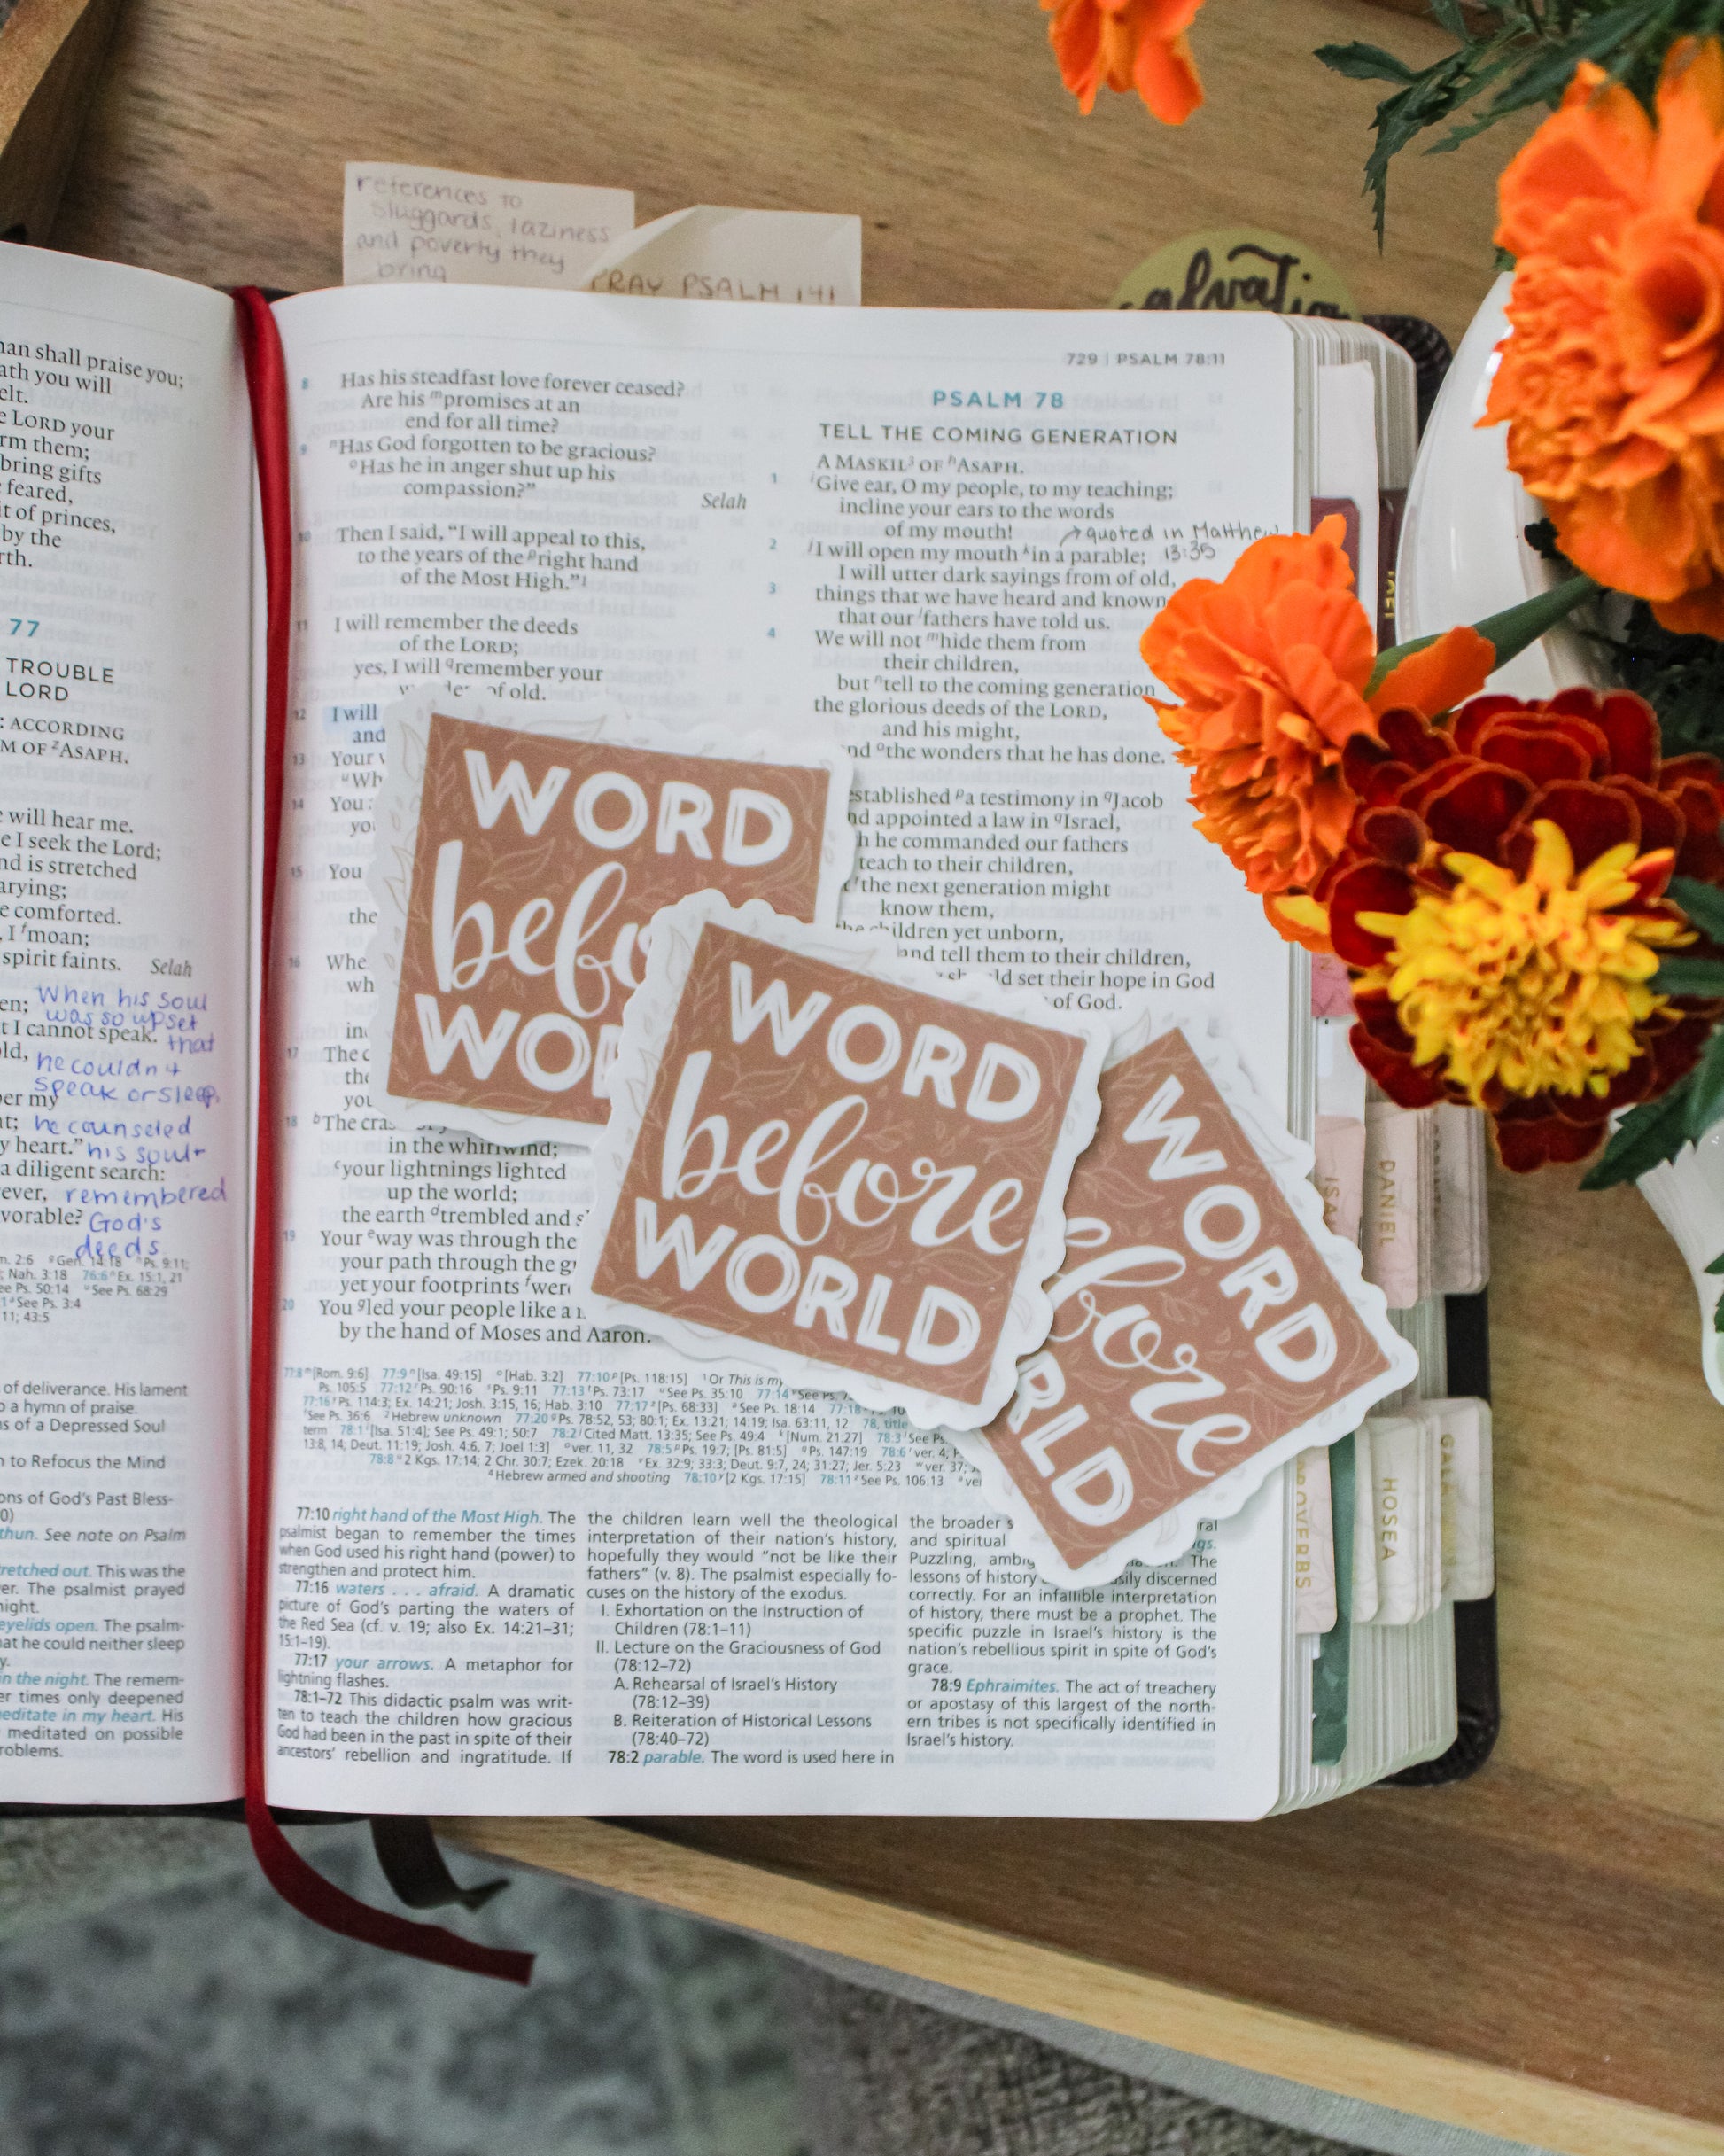 references to
sluggards, laziness
and poverty they
bring
PRAY PSALM 141
salvation
man shall praise you;
ath you will
elt.
e LORD your
rm them;
bring gifts
feared,
it of princes,
by the
rth.
77
TROUBLE
LORD
: ACCORDING
M OF zASAPH.
e will hear me.
e I seek the Lord;
nd is stretched
arying;
e comforted.
, I fmoan;
spirit faints. Selah
en; When his soul
was so upset
t I cannot speak. that
old, he couldn't
speak or sleep,
er my
t; he counseled
y heart." his soul +
a diligent search:
ever, remembered
vorable? God's
deeds
m. 2:6 Gen. 14:18 Ps. 9:11;
; Nah. 3:18 76:6 Ex. 15:1, 21
ee Ps. 50:14 See Ps. 68:29
See Ps. 3:4
11; 43:5
of deliverance. His lament
o a hymn of praise.
s of a Depressed Soul
n to Refocus the Mind
ons of God's Past Bless-
0)
thun. See note on Psalm
retched out. This was the
er. The psalmist prayed
night.
eyelids open. The psalm-
at he could neither sleep
y.
in the night. The remem-
er times only deepened
meditate in my heart. His
meditated on possible
roblems.
729 | PSALM 78:11
8 Has his steadfast love forever ceased?
Are his mpromises at an
end for all time?
9 nHas God forgotten to be gracious?
oHas he in anger shut up his
compassion?"
Selah
10 Then I said, "I will appeal to this,
to the years of the pright hand
of the Most High."1
11 I will remember the deeds
of the LORD;
yes, I will qremember your
of old.
12 I will
and
13 Your
uWh
14 You
yo
15 You
the
16 Whe
wh
in
17 The c
the
you
18 bThe cra
in the whirlwind;
cyour lightnings lighted
up the world;
the earth dtrembled and s
19 Your eway was through the
your path through the g
yet your footprints fwere
20 You gled your people like a
by the hand of Moses and Aaron.
PSALM 78
TELL THE COMING GENERATION
A MASKIL3 OF hASAPH.
1 iGive ear, O my people, to my teaching;
incline your ears to the words
of my mouth!
→ quoted in Matthew
2 jI will open my mouth kin a parable; 13:35
I will utter dark sayings from of old,
3 things that we have heard and known,
that our lfathers have told us.
4 We will not mhide them from
their children,
but ntell to the coming generation
the glorious deeds of the LORD,
and his might,
nd othe wonders that he has done.
established pa testimony in qJacob
nd appointed a law in qIsrael,
h he commanded our fathers
teach to their children,
rthe next generation might
know them,
the children yet unborn,
and tell them to their children,
should set their hope in God
of God.
WORD
befo
WOR
WORD
before
WORLD
WORD
efore
RLD
77:8 m[Rom. 9:6] 77:9 n[Isa. 49:15] o[Hab. 3:2] 77:10 p[Ps. 118:15] 1Or This is my
Ps. 105:5 77:12 Ps. 90:16 Ps. 9:11 77:13 Ps. 73:17 See Ps. 35:10 77:14 See Ps.
77:16 Ps. 114:3; Ex. 14:21; Josh. 3:15, 16; Hab. 3:10 77:17 [Ps. 68:33] See Ps. 18:14 77:18
See Ps. 36:6 2Hebrew unknown 77:20 Ps. 78:52, 53; 80:1; Ex. 13:21; 14:19; Isa. 63:11, 12 78, title
term 78:1 [Isa. 51:4]; See Ps. 49:1; 50:7 78:2 Cited Matt. 13:35; See Ps. 49:4 [Num. 21:27] 78:3 See Ps.
13:8, 14; Deut. 11:19; Josh. 4:6, 7; Joel 1:3] ver. 11, 32 78:5 Ps. 19:7; [Ps. 81:5] Ps. 147:19 78:6 ver. 4;
78:8 2 Kgs. 17:14; 2 Chr. 30:7; Ezek. 20:18 Ex. 32:9; 33:3; Deut. 9:7, 24; 31:27; Jer. 5:23 ver. 37;
4Hebrew armed and shooting 78:10 [2 Kgs. 17:15] 78:11 See Ps. 106:13
77:10 right hand of the Most High. The
psalmist began to remember the times
when God used his right hand (power) to
strengthen and protect him.
77:16 waters . . . afraid. A dramatic
picture of God's parting the waters of
the Red Sea (cf. v. 19; also Ex. 14:21–31;
15:1–19).
77:17 your arrows. A metaphor for
lightning flashes.
78:1–72 This didactic psalm was writ-
ten to teach the children how gracious
God had been in the past in spite of their
ancestors' rebellion and ingratitude. If
the children learn well the theological
interpretation of their nation's history,
hopefully they would "not be like their
fathers" (v. 8). The psalmist especially fo-
cuses on the history of the exodus.
I. Exhortation on the Instruction of
Children (78:1–11)
II. Lecture on the Graciousness of God
(78:12–72)
A. Rehearsal of Israel's History
(78:12–39)
B. Reiteration of Historical Lessons
(78:40–72)
78:2 parable. The word is used here in
the broader s
ral
and spiritual
gs.
Puzzling, ambig
The
lessons of history
easily discerned
correctly. For an infallible interpretation
of history, there must be a prophet. The
specific puzzle in Israel's history is the
nation's rebellious spirit in spite of God's
grace.
78:9 Ephraimites. The act of treachery
or apostasy of this largest of the north-
ern tribes is not specifically identified in
Israel's history.
ISA
DANIEL
PROVERBS
HOSEA
GALA